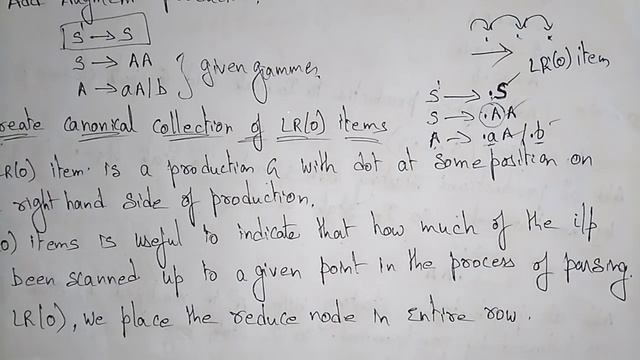 Add Augment
S' → S
S → AA
A → aA/b
given gammer
LR(0) item
S' → .S
S → .AA
A → .aA/.b
reate canonical collection of LR(0) items
R(0) item is a production G with dot at some position on
right hand side of production.
0) items is useful to indicate that how much of the i/p
been scanned up to a given point in the process of parsing.
LR(0), we place the reduce node in Entire row.